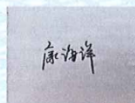 康海洋